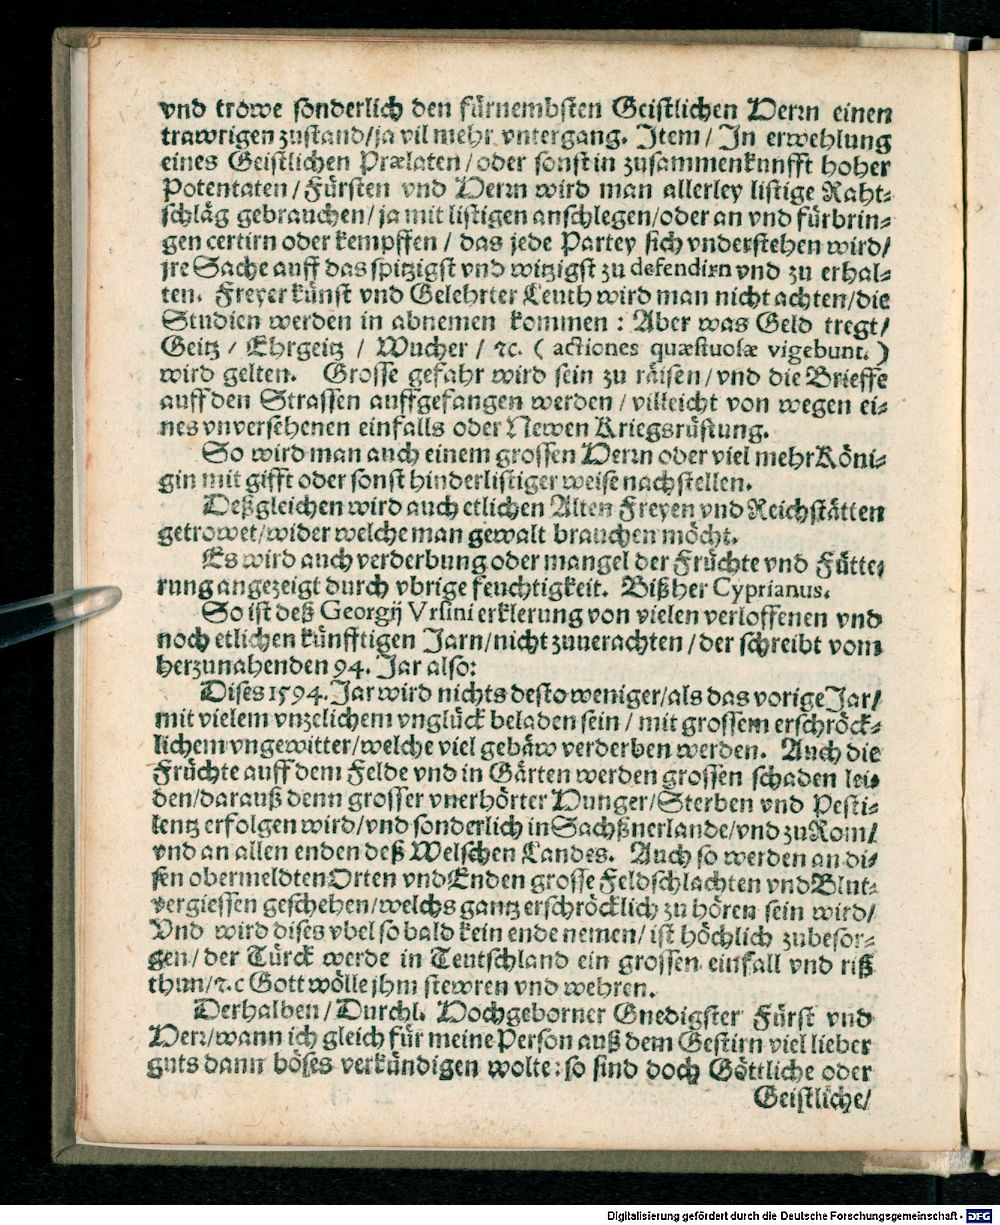 vnd trowe sonderlich den fürnembsten Geistlichen Herrn einen
trawrigen zustand/ja vil mehr vntergang. Item/ In erwehlung
eines Geistlichen Prælaten/oder sonst in zusammenkunfft hoher
Potentaten/Fürsten vnd Herrn wird man allerley listige Raht-
schläg gebrauchen/ja mit listigen anschlegen/oder an vnd fürbrin-
gen certirn oder kempffen/ das jede Partey sich vnderstehen wird/
jre Sache auff das spitzigst vnd witzigst zu defendirn vnd zu erhal-
ten. Freyer künst vnd Gelehrter Leuth wird man nicht achten/die
Studien werden in abnemen kommen: Aber was Geld tregt/
Geitz / Ehrgeitz / Wucher / ꝛc. ( actiones quæstuosæ vigebunt. )
wird gelten. Grosse gefahr wird sein zu räisen/vnd die Brieffe
auff den Strassen auffgefangen werden/villeicht von wegen ei-
nes vnversehenen einfalls oder Newen Kriegsrüstung.
So wird man auch einem grossen Herrn oder viel mehr Köni-
gin mit gifft oder sonst hinderlistiger weise nachstellen.
Deßgleichen wird auch etlichen Alten Freyen vnd Reichstätten
getrowet/wider welche man gewalt brauchen möcht.
Es wird auch verderbung oder mangel der Früchte vnd Fütte-
rung angezeigt durch vbrige feuchtigkeit. Bißher Cyprianus.
So ist deß Georgij Vrsini erklerung von vielen verloffenen vnd
noch etlichen künfftigen Jarn/nicht zuuerachten/der schreibt vom
herzunahenden 94. Jar also:
Dises 1594. Jar wird nichts desto weniger/als das vorige Jar/
mit vielem vnzelichem vnglück beladen sein/ mit grossem erschröck-
lichem vngewitter/welche viel gebäw verderben werden. Auch die
Früchte auff dem Felde vnd in Gärten werden grossen schaden lei-
den/darauß denn grosser vnerhörter Hunger/Sterben vnd Pesti-
lentz erfolgen wird/vnd sonderlich in Sachßnerlande/vnd zu Rom/
vnd an allen enden deß Welschen Landes. Auch so werden an di-
sen obermeldten Orten vnd Enden grosse Feldschlachten vnd Blut-
vergiessen geschehen/welchs gantz erschröcklich zu hören sein wird/
Vnd wird dises vbel so bald kein ende nemen/ ist höchlich zubesor-
gen/ der Türck werde in Teutschland ein grossen einfall vnd riß
thun/ꝛc Gott wölle jhm stewren vnd wehren.
Derhalben/Durchl. Hochgeborner Gnedigster Fürst vnd
Herr/wann ich gleich für meine Person auß dem Gestirn viel lieber
guts dann böses verkündigen wolte: so sind doch Göttliche oder
Geistliche/
Digitalisierung gefördert durch die Deutsche Forschungsgemeinschaft - DFG